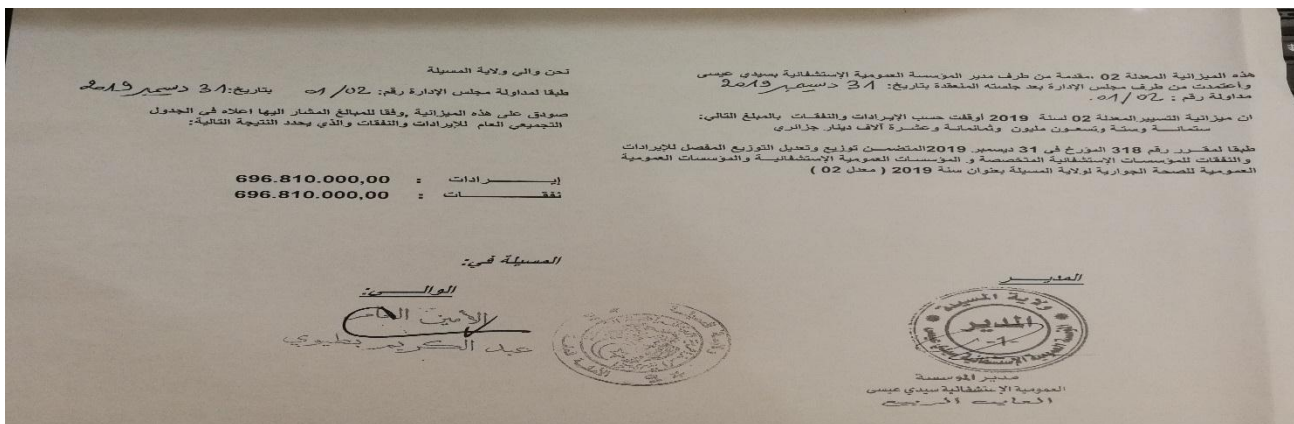 هذه الميزانية المعدلة 02 ،مقدمة من طرف مدير المؤسسة العمومية الإستشفائية بسيدي عيسى
وأعتمدت من طرف مجلس الإدارة بعد جلسته المنعقدة بتاريخ: 31 ديسمبر 2019
مداولة رقم : 01/02.
ان ميزانية التسيير المعدلة 02 لسنة 2019 أوقفت حسب الإيرادات والنفقات بالمبلغ التالي:
ستمائة وستة وتسعون مليون وثمانمائة وعشرة آلاف دينار جزائري
طبقا لمقرر رقم 318 المؤرخ في 31 ديسمبر 2019المتضمن توزيع وتعديل التوزيع المفصل للإيرادات
والنفقات للمؤسسات الإستشفائية المتخصصة و المؤسسات العمومية الإستشفائية والمؤسسات العمومية
العمومية للصحة الجوارية لولاية المسيلة بعنوان سنة 2019 ( معدل 02 )
المدير
ولاية المسيلة
المدير
المؤسسة العمومية الإستشفائية سيدي عيسى
مدير المؤسسة
العمومية الإستشفائية سيدي عيسى
نحن والي ولاية المسيلة
طبقا لمداولة مجلس الإدارة رقم: 01/02 بتاريخ: 31 ديسمبر 2019
صودق على هذه الميزانية ,وفقا للمبالغ المشار اليها اعلاه في الجدول
التجميعي العام للإيرادات والنفقات والذي يحدد النتيجة التالية:
إيرادات : 696.810.000,00
نفقات : 696.810.000,00
المسيلة في:
الوالي:
الأمين العام
عبد الكريم بطيوي